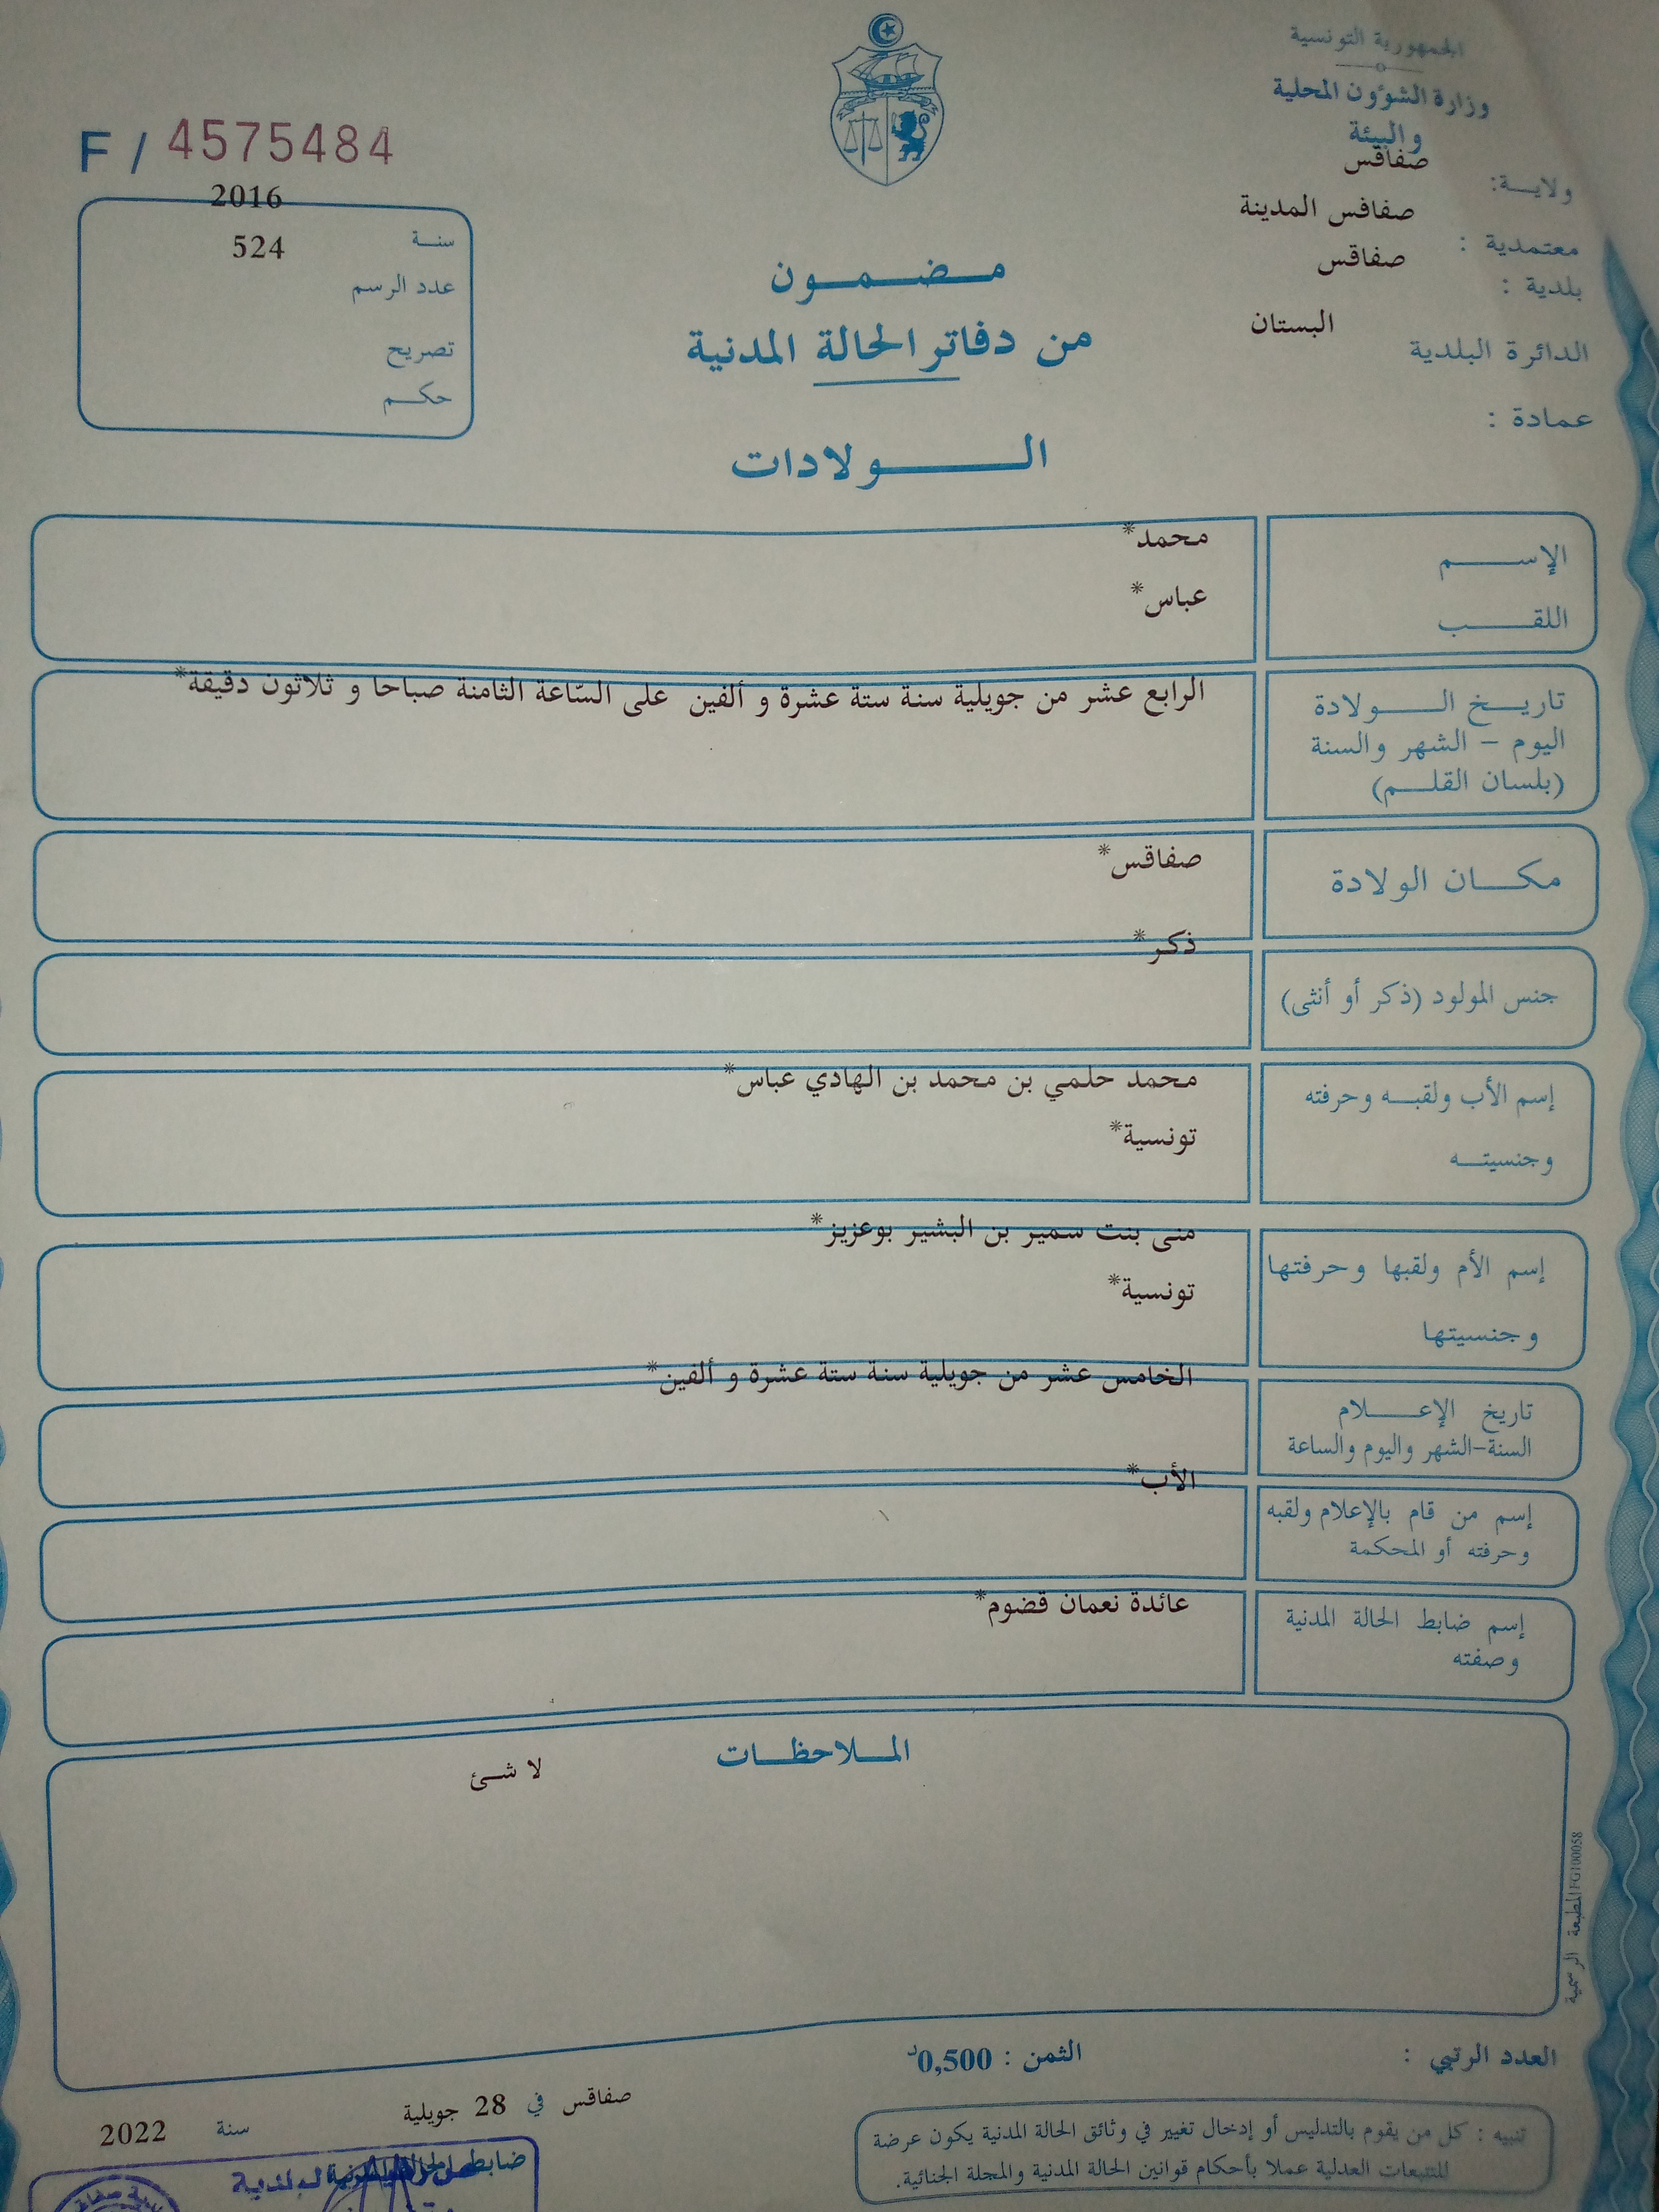 الجمهورية التونسية
وزارة الشؤون المحلية
والبيئة
ولاية: صفاقس
معتمدية : صفاقس المدينة
بلدية : صفاقس
الدائرة البلدية البستان
عمادة :
F / 4575484
سنة 2016
عدد الرسم 524
تصريح
حكم
مضمون
من دفاتر الحالة المدنية
الولادات
الإسم محمد*
اللقب عباس*
تاريخ الولادة الرابع عشر من جويلية سنة ستة عشرة و ألفين على السّاعة الثامنة صباحا و ثلاثون دقيقة*
اليوم – الشهر والسنة
(بلسان القلم)
مكان الولادة صفاقس*
جنس المولود (ذكر أو أنثى) ذكر*
إسم الأب ولقبه وحرفته محمد حلمي بن محمد بن الهادي عباس*
وجنسيته تونسية*
إسم الأم ولقبها وحرفتها منى بنت سمير بن البشير بوعزيز*
وجنسيتها تونسية*
تاريخ الإعلام الخامس عشر من جويلية سنة ستة عشرة و ألفين*
السنة-الشهر واليوم والساعة
إسم من قام بالإعلام ولقبه الأب*
وحرفته أو المحكمة
إسم ضابط الحالة المدنية عائدة نعمان قضوم*
وصفته
الملاحظات
لا شئ
المطبعة الرسمية FG100058
العدد الرتبي :
الثمن : 0,500د
صفاقس في 28 جويلية سنة 2022
تنبيه : كل من يقوم بالتدليس أو إدخال تغيير في وثائق الحالة المدنية يكون عرضة
للتتبعات العدلية عملا بأحكام قوانين الحالة المدنية والمجلة الجنائية.
ضابط